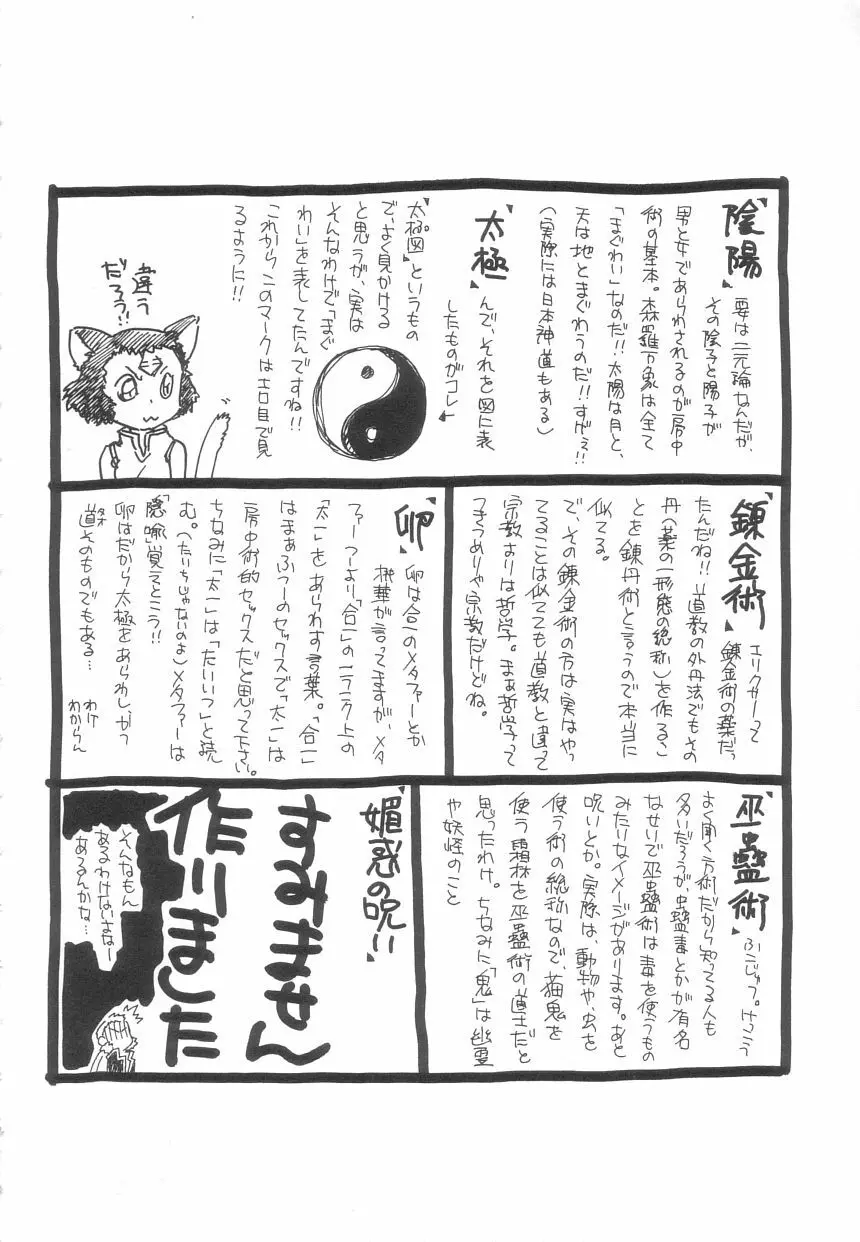 陰陽
要は二元論なんだが、
その陰子と陽子が
男と女であらわされるのが房中
術の基本。森羅万象は全て
「まぐわい」なのだ!!太陽は月と、
天は地とまぐわうのだ!!すげぇ!!
(実際には日本神道もある)
太極
んで、それを図に表
したものがコレ
"太極図"というもの
で、よく見かける
と思うが、実は
そんなわけで「まぐ
わい」を表してたんですね!!
これからこのマークはエロ目で見
るように!!
違う
だろう!!
錬金術
エリクサーって
錬金術の薬だっ
たんだね!!道教の外丹法でもその
丹(薬の一形態の総称)を作るこ
とを錬丹術と言うので本当に
似てる。
で、その錬金術の方は実はやっ
てることは似てても道教と違って
宗教よりは哲学。まぁ哲学って
つきつめりゃ宗教だけどね。
卵
卵は合一のメタファーとか
桃華が言ってますが、メタ
ファーつーより「合一」の一ランク上の
「太一」をあらわす言葉。「合一」
はまぁふつーのセックスで、「太一」は
房中術的セックスだと思って下さい。
ちなみに「太一」は「たいいつ」と読
む。(たいちじゃないのよ)メタファーは
「隠喩」覚えとこう!!
卵はだから太極をあらわしかつ
道そのものでもある…
タオ
わけ
わからん
巫蠱術
ふこじゅつ。けっこう
よく聞く方術だから知ってる人も
多いだろうが、虫蠱毒とかが有名
なせいで巫蠱術は毒を使うもの
みたいなイメージがあります。あと
呪いとか。実際は、動物や、虫を
使う術の総称なので、猫鬼を
使う霜林を巫蠱術の道士だと
思ったわけ。ちなみに「鬼」は幽霊
や妖怪のこと
媚惑の呪!!
すみません
作りました
そんなもん
あるわけないさなー
あるんかな…